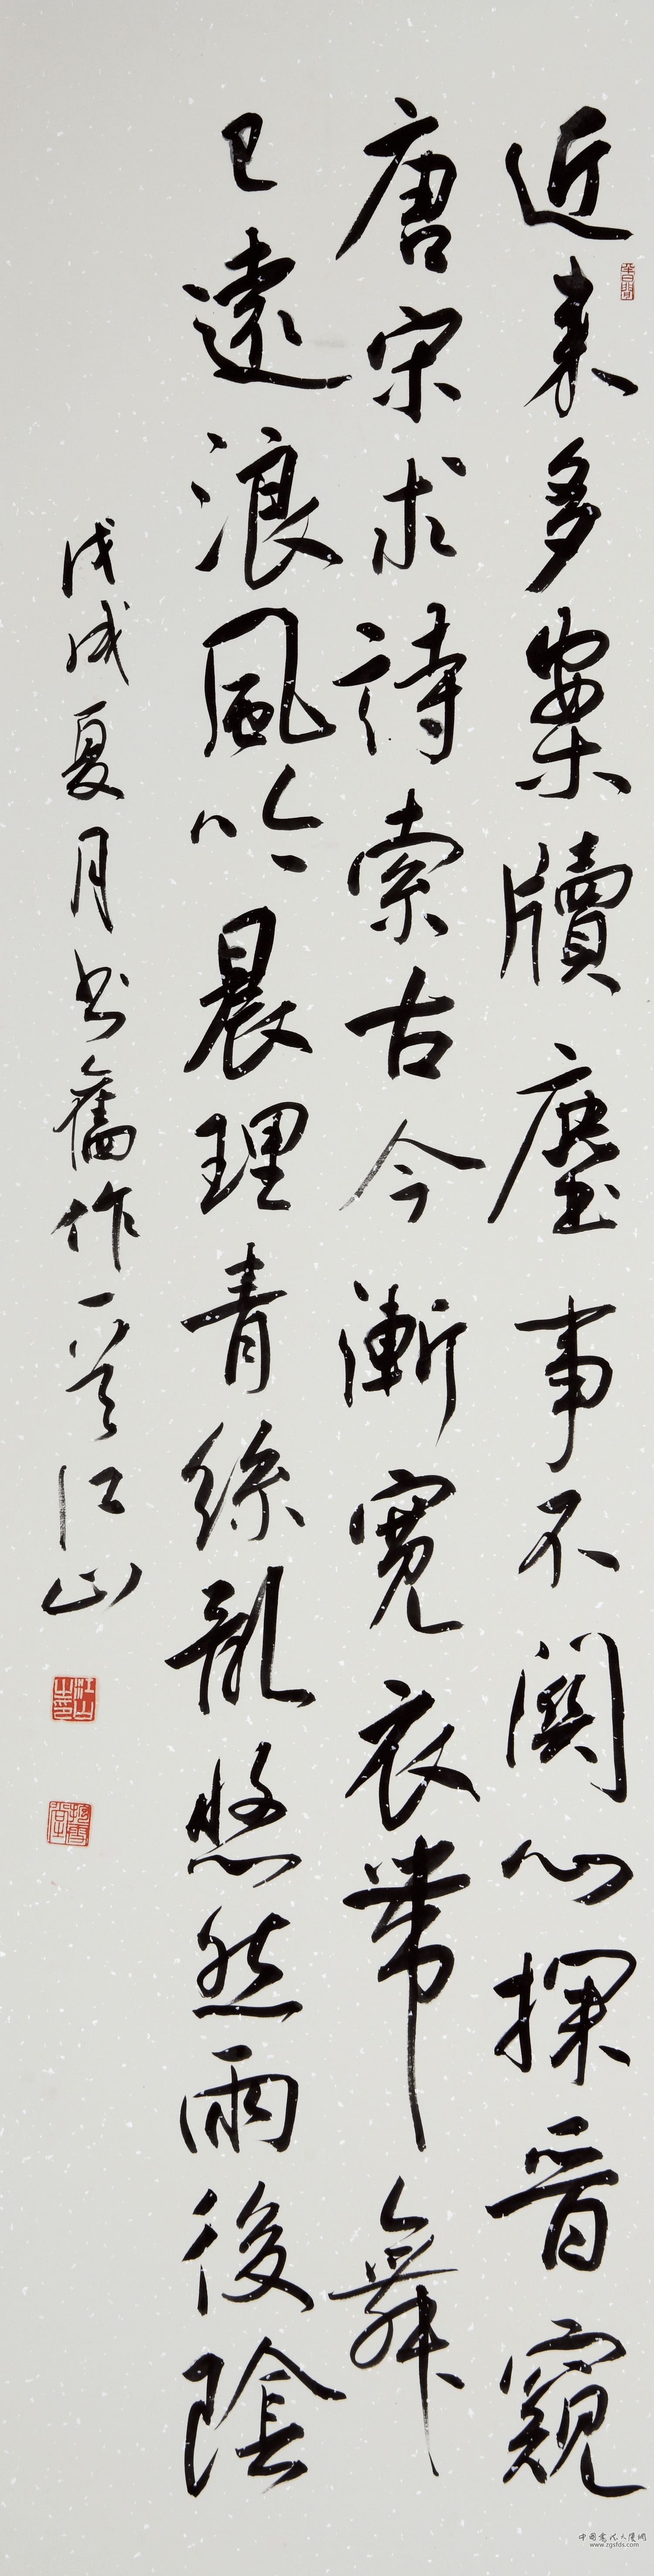 近来多案牘塵事不關心探晉窺
唐宋求詩索古今漸寬衣帶舞
已遠浪風吟晨理青絲亂悠然雨後陰
戊戌夏月书舊作一首江山
半日閒
www.zgsfds.com